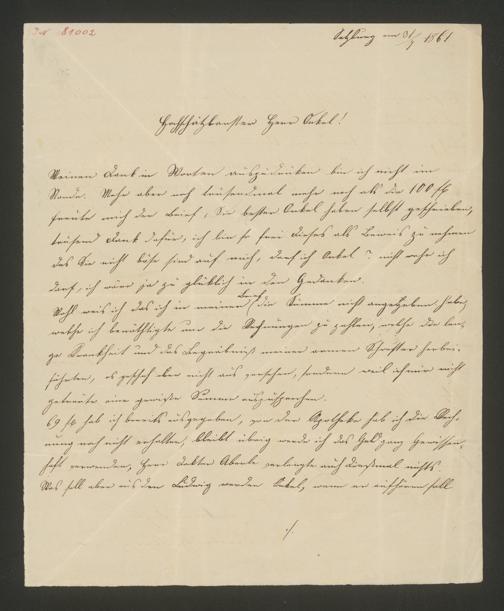 IN 81002
Salzburg am 31/7 1861
Hochschätzbarster Herr Onkel!
Meinen Dank in Worten auszudrücken bin ich nicht im
Stande. Mehr aber noch tausendmal mehr noch als die 100 fl
freute mich der Brief, Sie bester Onkel haben selbst geschrieben,
tausend Dank dafür, ich bin so frei dieses als Beweis zu nehmen
das Sie nicht böse sind auf mich, darf ich Onkel? nicht wahr ich
darf, ich wäre ja zu glücklich in den Gedanken.
Wohl weis ich das ich in meinem Brief die Summe nicht angegeben habe,
welche ich benöthigte um die Rechnungen zu zahlen, welche die lan-
ge Krankheit und das Begräbniß meiner armen Schwester herbei-
führten, es geschah aber nicht aus versehen, sondern weil ich mir nicht
getraute eine gewisse Summe auszusprechen.
69 fl hab ich bereits ausgegeben, von der Apotheke hab ich die Rech-
nung noch nicht erhalten, bleibt übrig werde ich das Geld ganz gewissen-
haft verwenden, Herr Doktor Aberle verlangte auch diesmal nichts.
Was soll aber aus den Ludwig werden Onkel, wenn er aufhören soll
./.